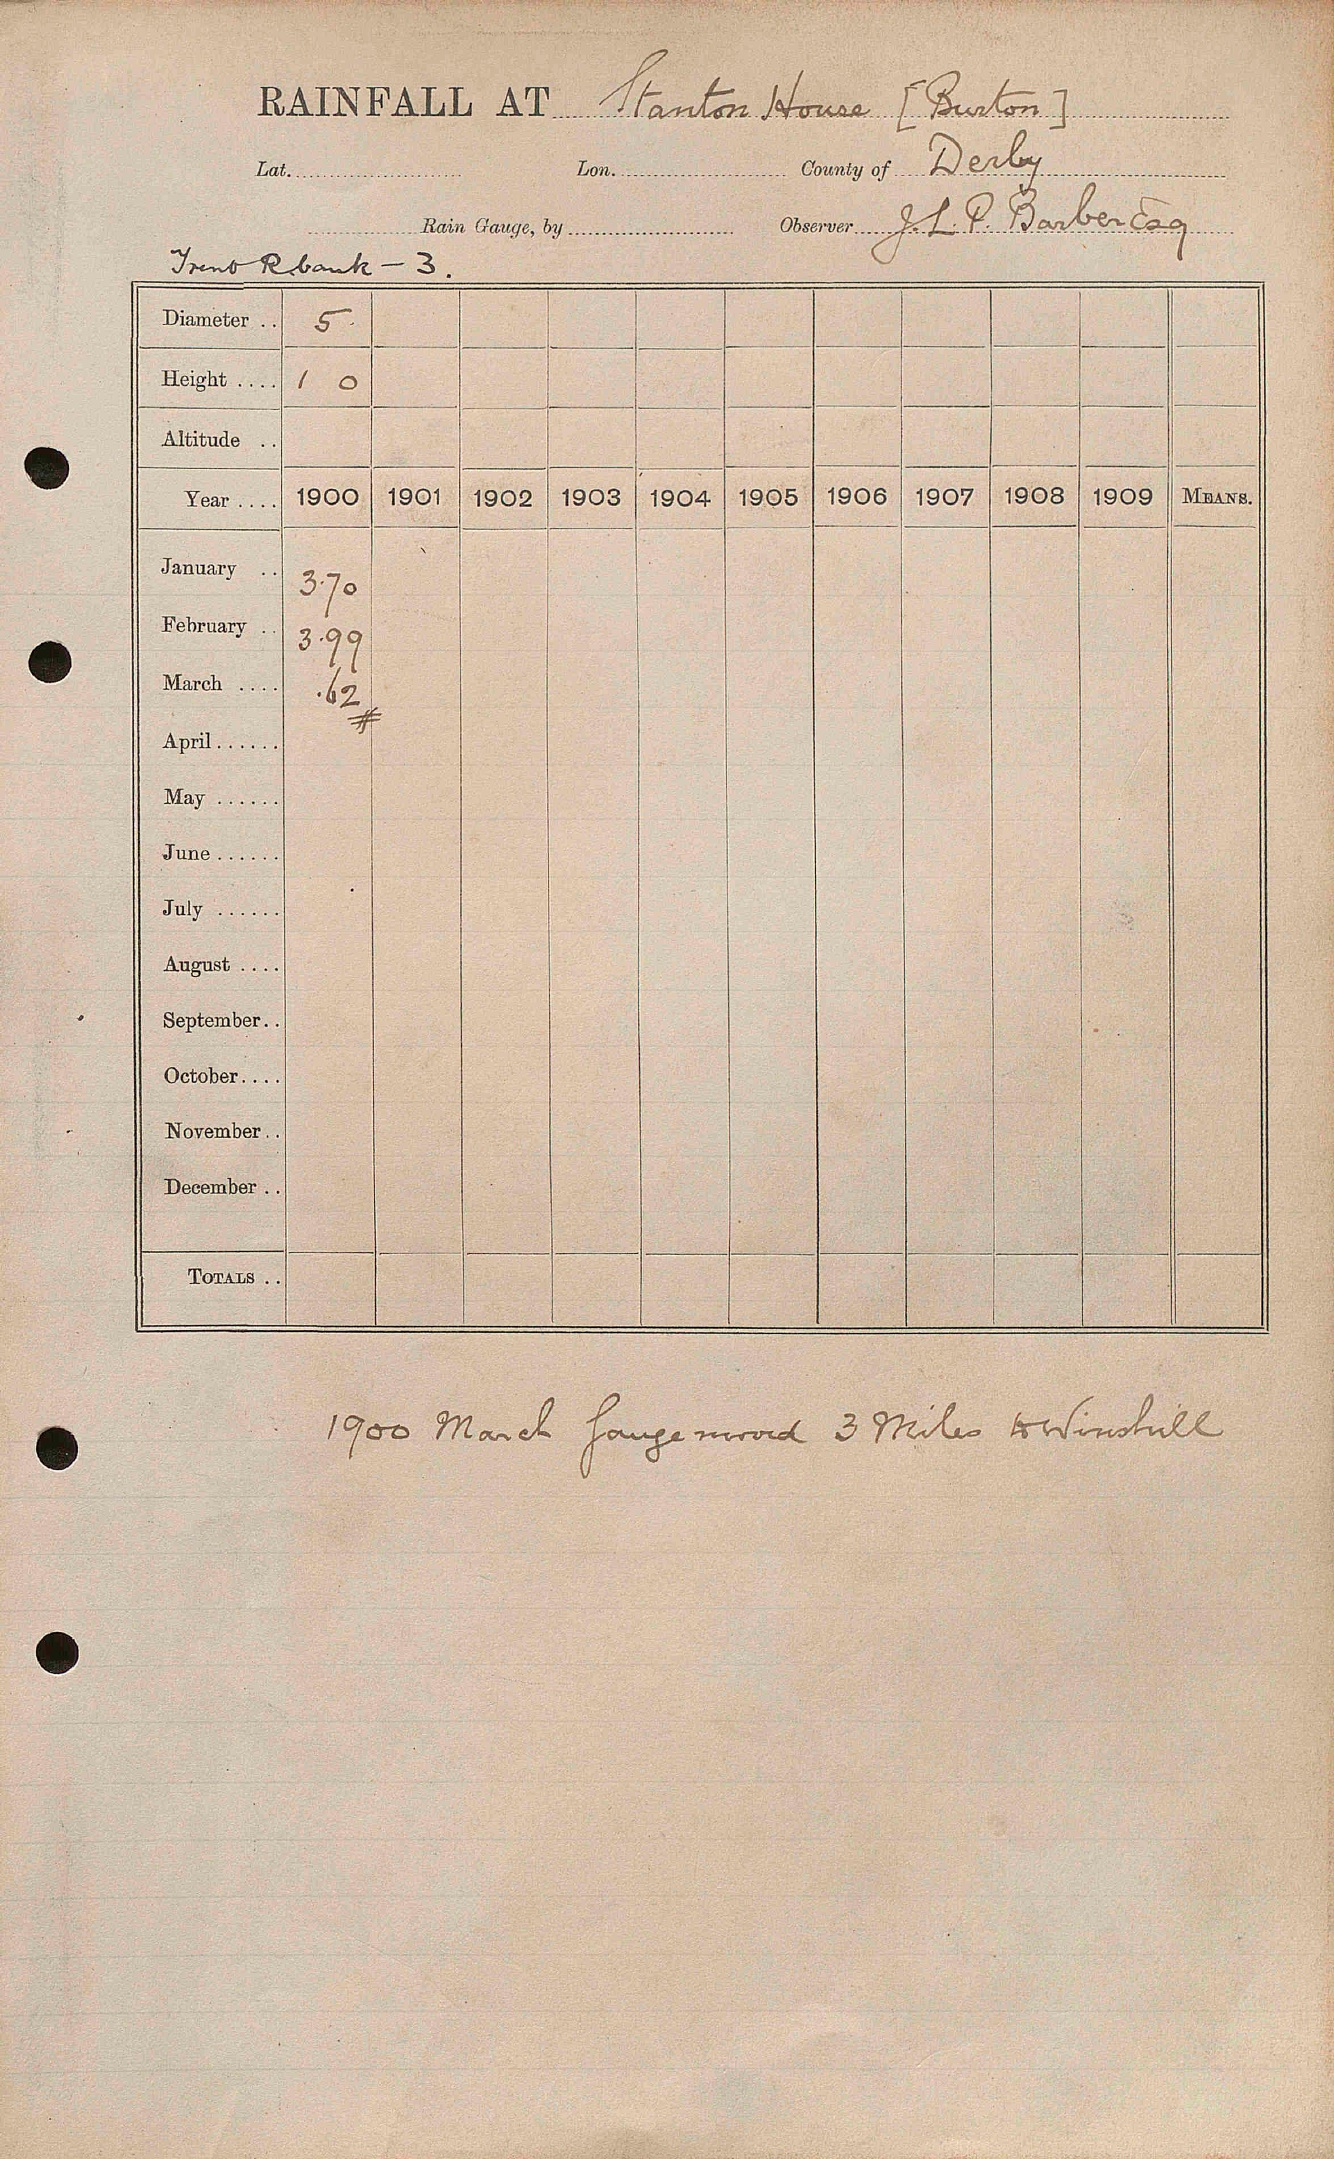 RAINFALL AT Stanton House [Burton]
Lat. Lon. County of Derby
Rain Gauge, by Observer J. L. P. Barber Esq
Trent R. bank – 3.
Diameter .. 5
Height .... 1 0
Altitude ..
Year .... 1900 1901 1902 1903 1904 1905 1906 1907 1908 1909 MEANS.
January .. 3.70
February .. 3.99
March .... .62
#
April......
May ......
June......
July ......
August ....
September..
October....
November..
December ..
TOTALS ..
1900 March Gauge moved 3 Miles to Winshill